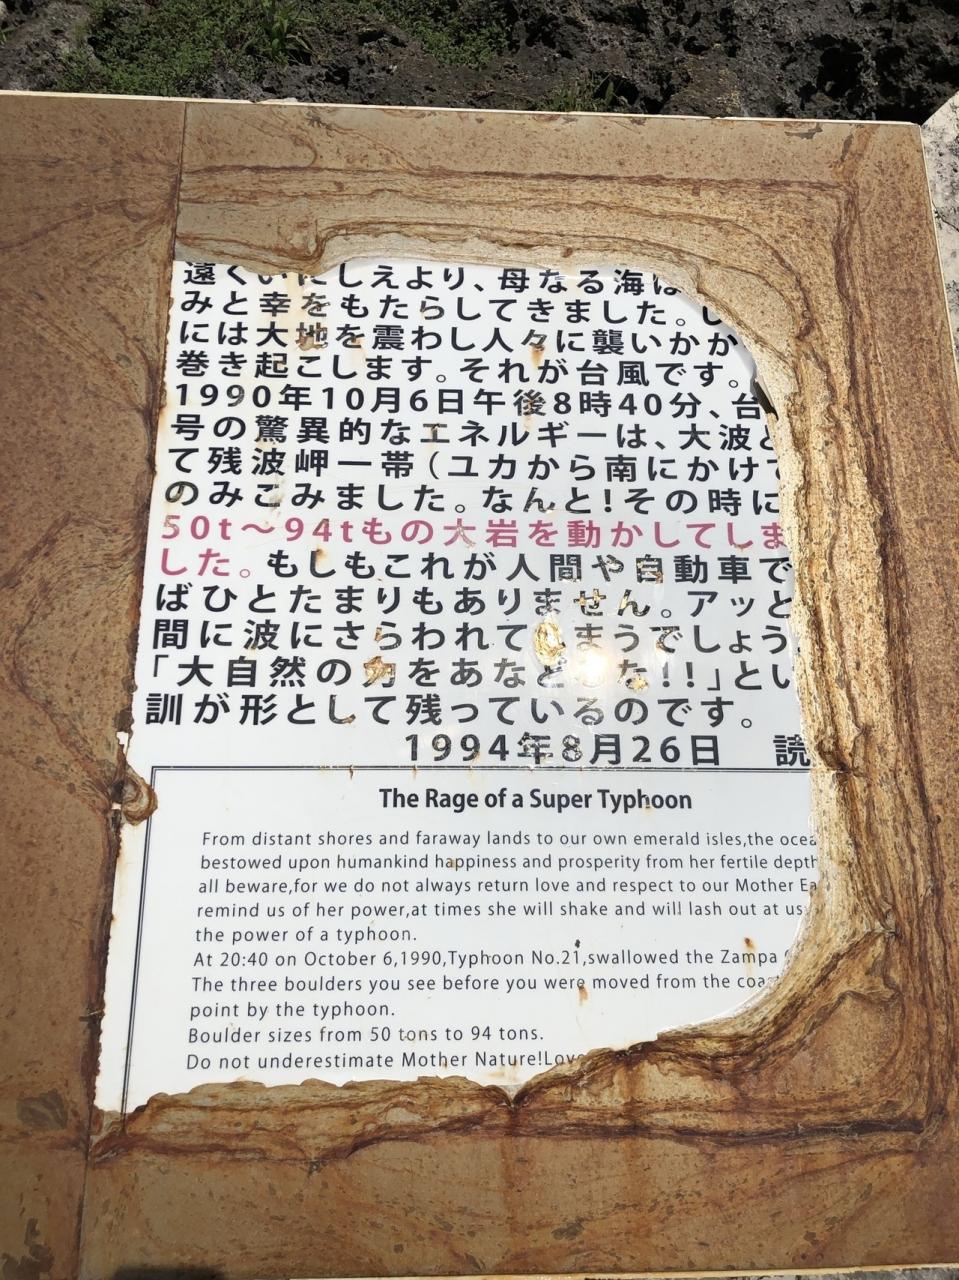 遠くいにしえより、母なる海は
みと幸をもたらしてきました。し
には大地を震わし人々に襲いかか
巻き起こします。それが台風です。
1990年10月6日午後8時40分、台
号の驚異的なエネルギーは、大波と
て残波岬一帯(ユカから南にかけて
のみこみました。なんと!その時に
50t～94tもの大岩を動かしてしま
した。もしもこれが人間や自動車で
ばひとたまりもありません。アッと
間に波にさらわれてしまうでしょう
「大自然の力をあなどるな!!」とい
訓が形として残っているのです。
1994年8月26日 読
The Rage of a Super Typhoon
From distant shores and faraway lands to our own emerald isles,the ocea
bestowed upon humankind happiness and prosperity from her fertile depth
all beware,for we do not always return love and respect to our Mother Ea
remind us of her power,at times she will shake and will lash out at us
the power of a typhoon.
At 20:40 on October 6,1990,Typhoon No.21,swallowed the Zampa
The three boulders you see before you were moved from the coa
point by the typhoon.
Boulder sizes from 50 tons to 94 tons.
Do not underestimate Mother Nature!Love